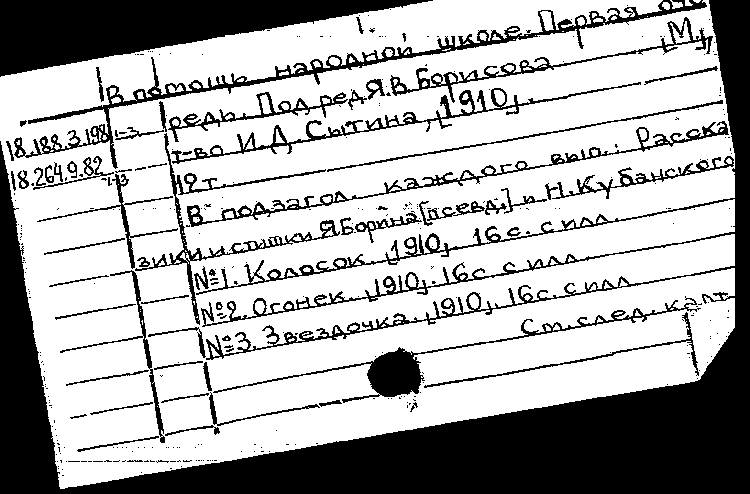 1.
В помощь народной школе. Первая оче
редь. Под ред Я.В Борисова [М.],
18.188.3.198 1-3
т-во И.Д. Сытина, [1910].
18.264.9.82 1-3
12 т.
В подзагол. каждого вып.: Расска
зики и стишки Я Борина [псевд.] и Н. Кубанского
№1. Колосок. [1910]. 16 с. с илл.
№2. Огонек. [1910]. 16 с. с илл.
№3. Звездочка. [1910]. 16 с. с илл
См. след. карт